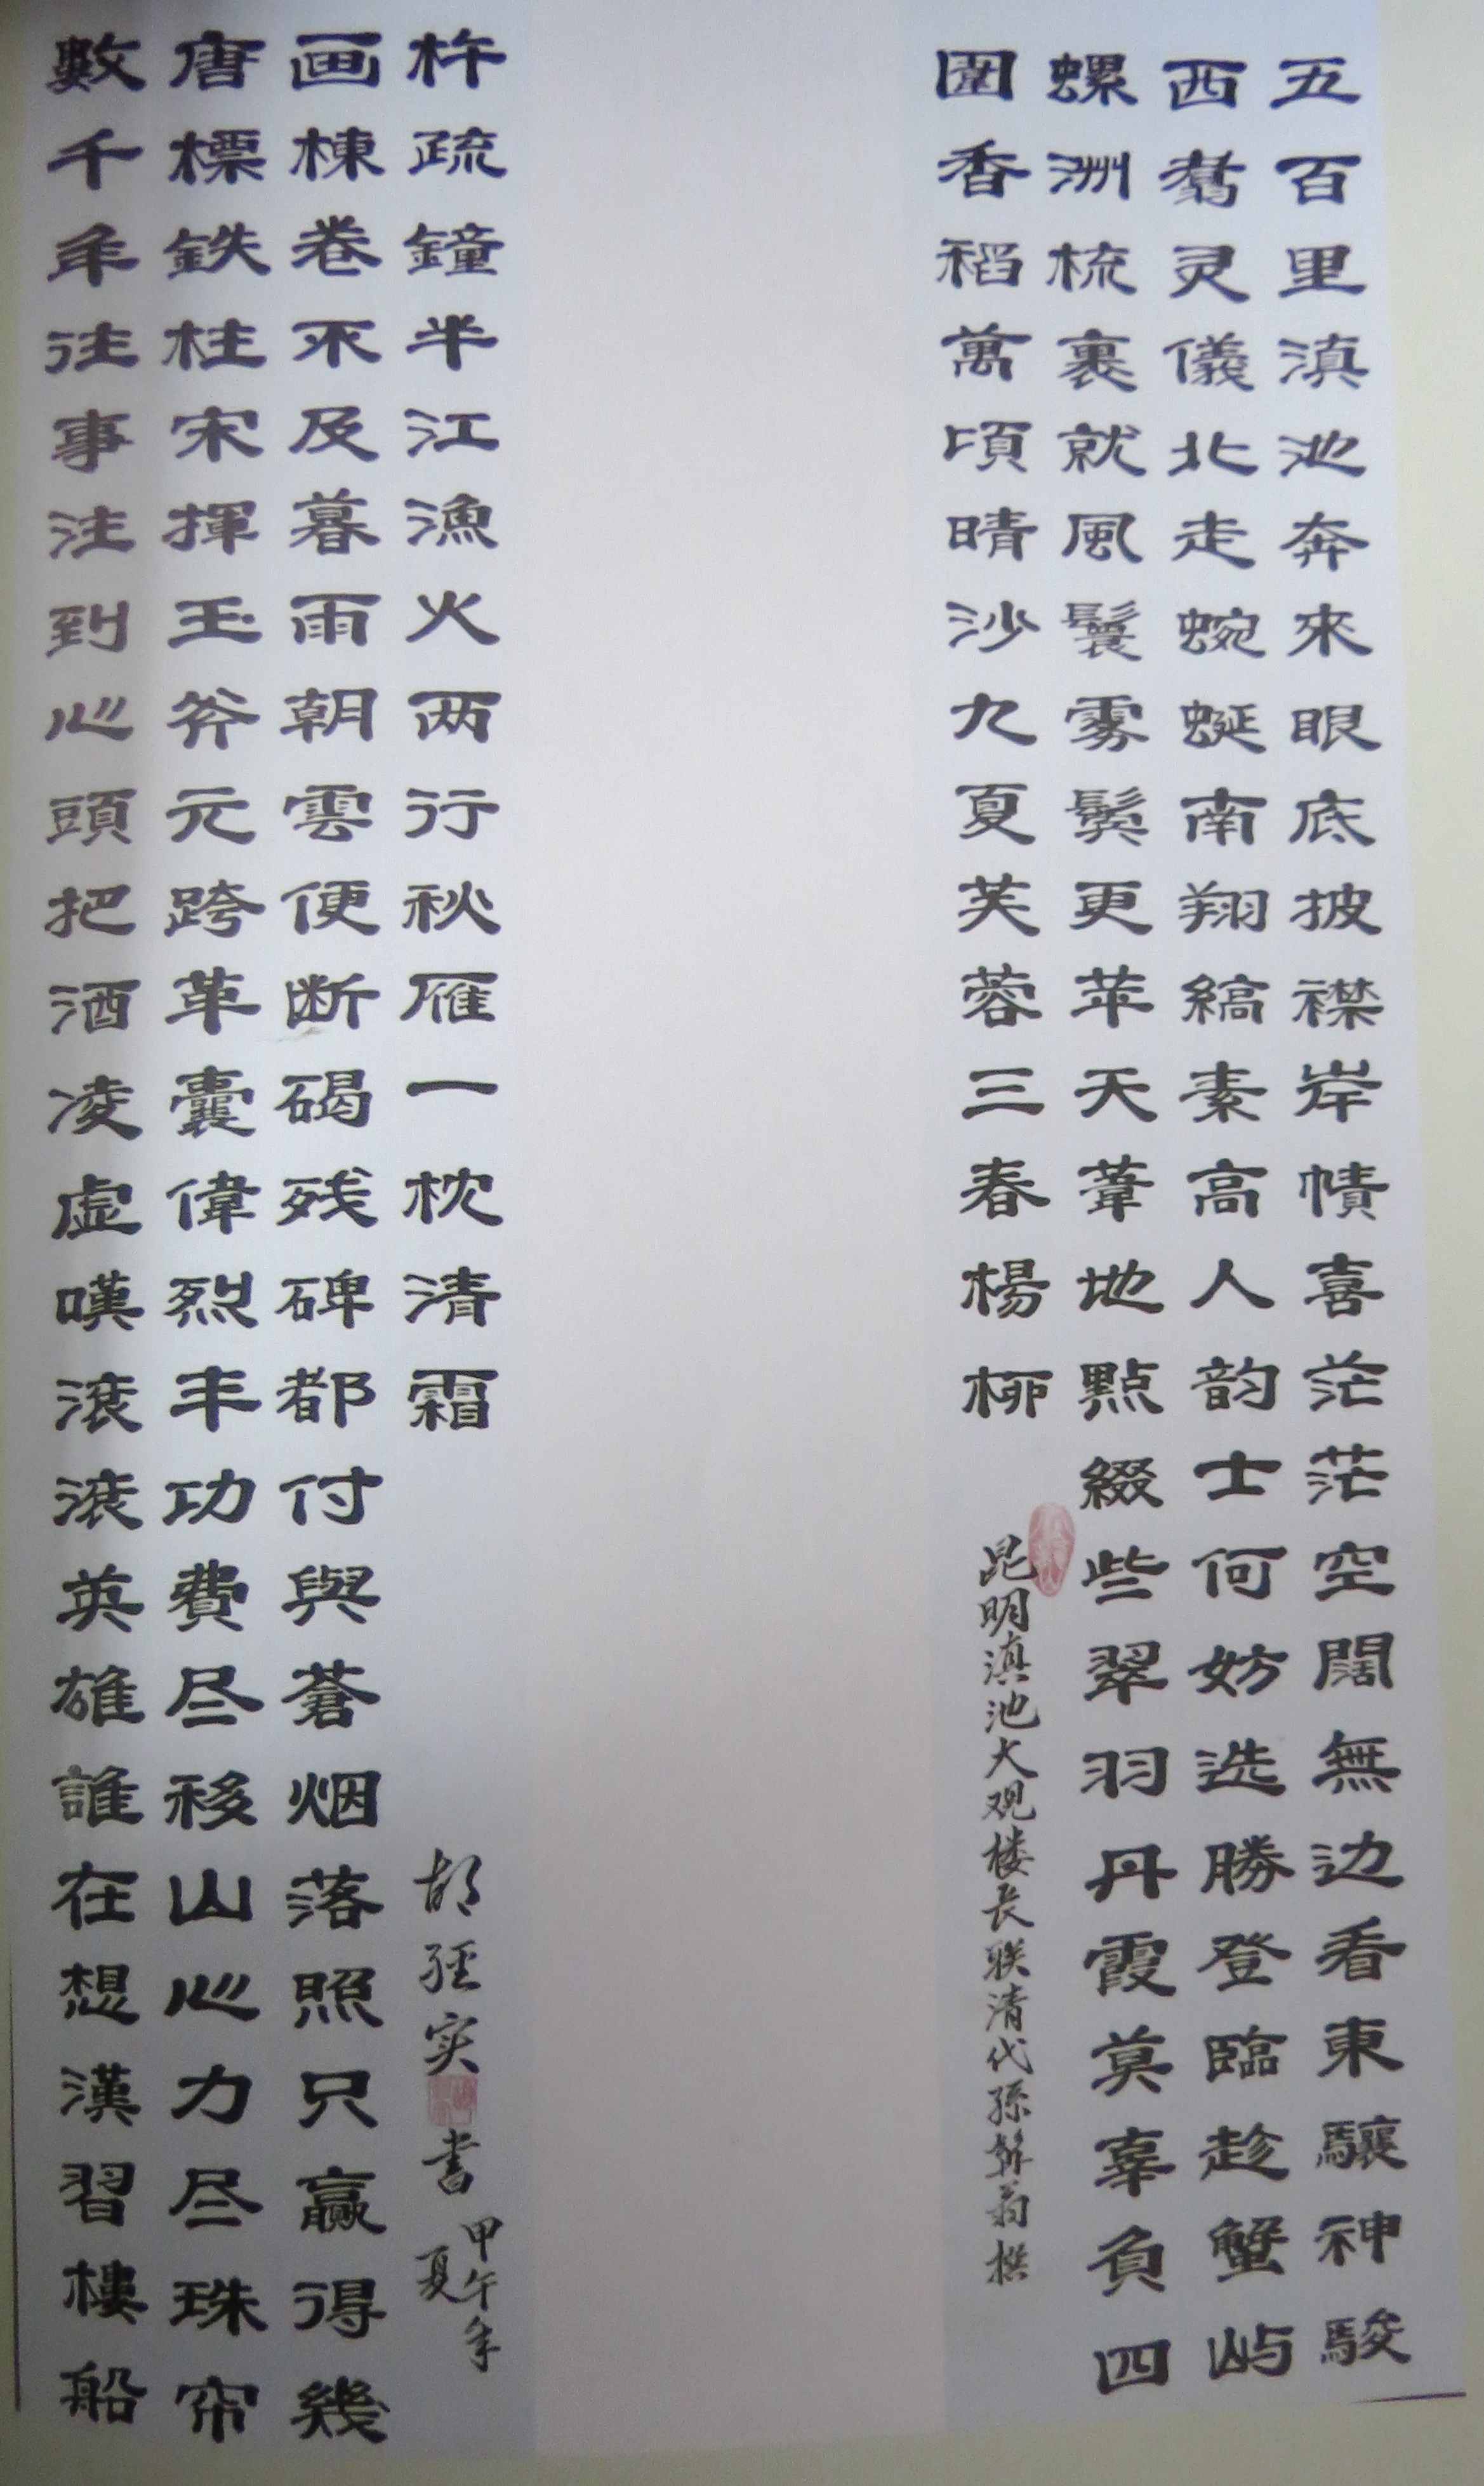 五百里滇池奔來眼底披襟岸幘喜茫茫空闊無边看東驤神駿
西翥灵儀北走蜿蜒南翔縞素高人韵士何妨选勝登臨趁蟹屿
螺洲梳裹就風鬟雾鬓更苹天葦地點綴些翠羽丹霞莫辜負四
圍香稻萬頃晴沙九夏芙蓉三春楊柳
昆明滇池大观楼长联清代孫髯翁撰
數千年往事注到心頭把酒凌虚嘆滚滚英雄誰在想漢習樓船
唐標鉄柱宋揮玉斧元跨革囊偉烈丰功費尽移山心力尽珠帘
画棟卷不及暮雨朝雲便断碣残碑都付與蒼烟落照只赢得幾
杵疏鐘半江漁火两行秋雁一枕清霜
胡經实書
甲午年
夏